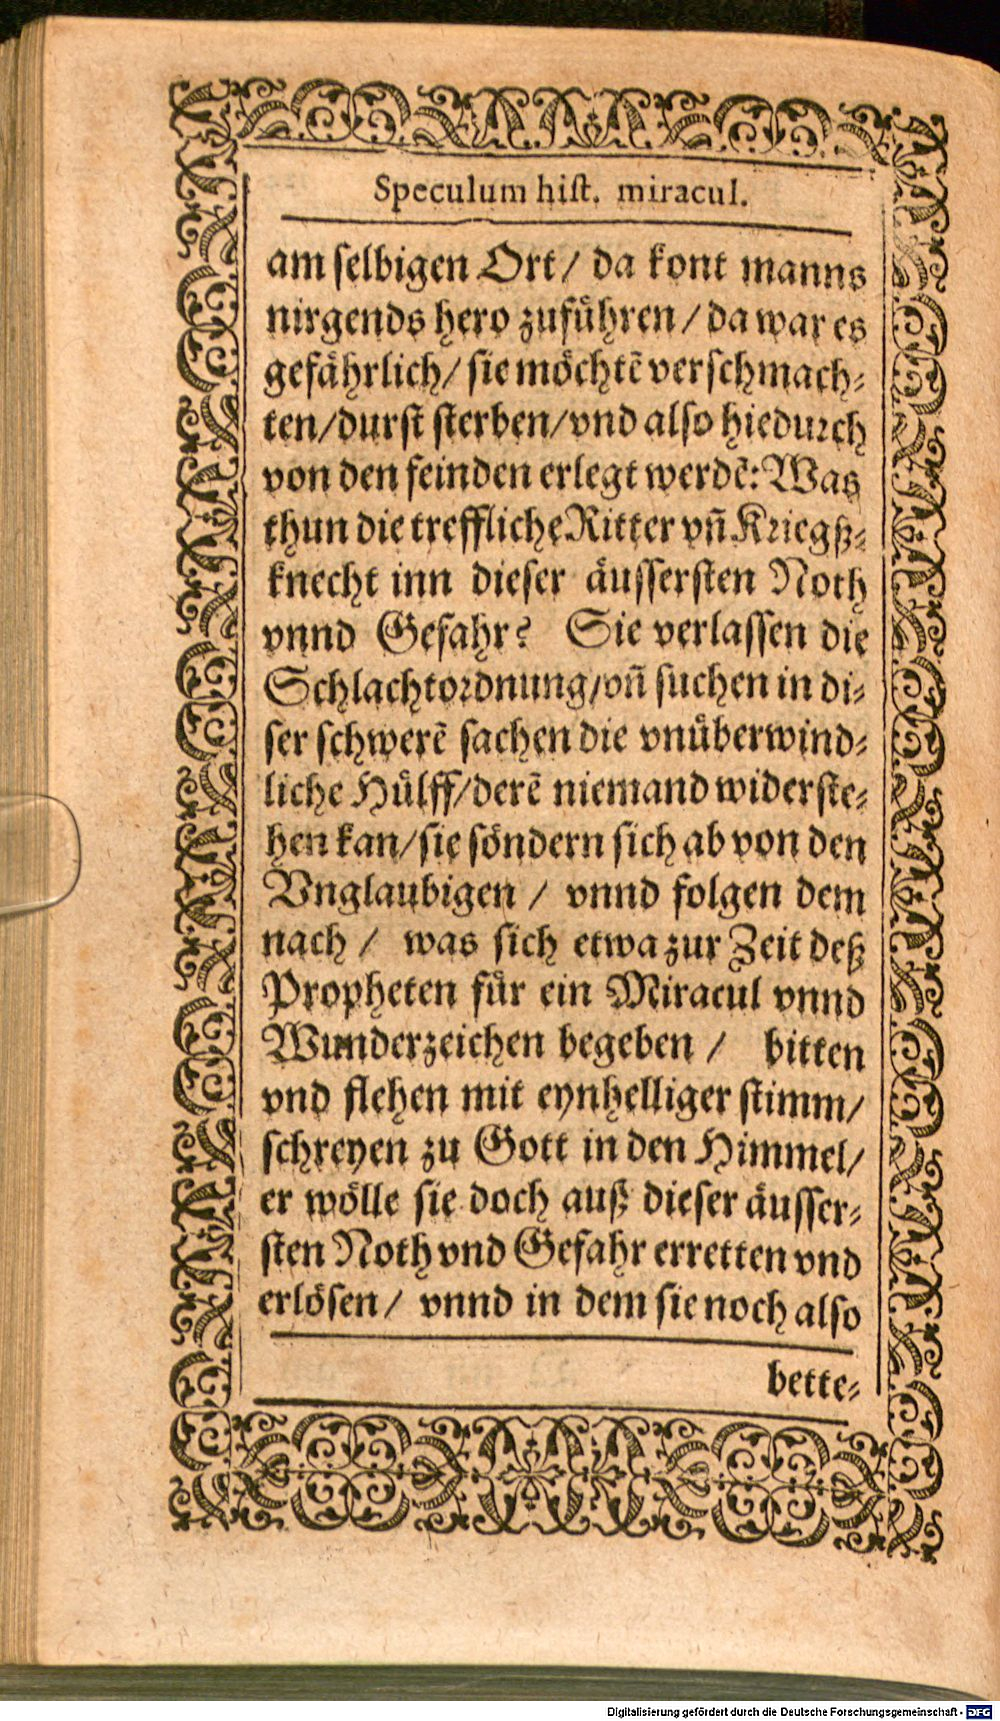 Speculum hist. miracul.
am selbigen Ort / da kont manns
nirgends hero zufuͤhren / da war es
gefaͤhrlich / sie moͤchtẽ verschmach⸗
ten / durst sterben / vnd also hiedurch
von den feinden erlegt werdẽ: Was
thun die treffliche Ritter vñ Kriegß⸗
knecht inn dieser aͤussersten Noth
vnnd Gefahr? Sie verlassen die
Schlachtordnung / vñ suchen in di⸗
ser schwerẽ sachen die vnuͤberwind⸗
liche Huͤlff / derẽ niemand widerste⸗
hen kan / sie soͤndern sich ab von den
Vnglaubigen / vnnd folgen dem
nach / was sich etwa zur Zeit deß
Propheten fuͤr ein Miracul vnnd
Wunderzeichen begeben / bitten
vnd flehen mit eynhelliger stimm /
schreyen zu Gott in den Himmel /
er woͤlle sie doch auß dieser aͤusser⸗
sten Noth vnd Gefahr erretten vnd
erloͤsen / vnnd in dem sie noch also
bette⸗
Digitalisierung gefördert durch die Deutsche Forschungsgemeinschaft - DFG